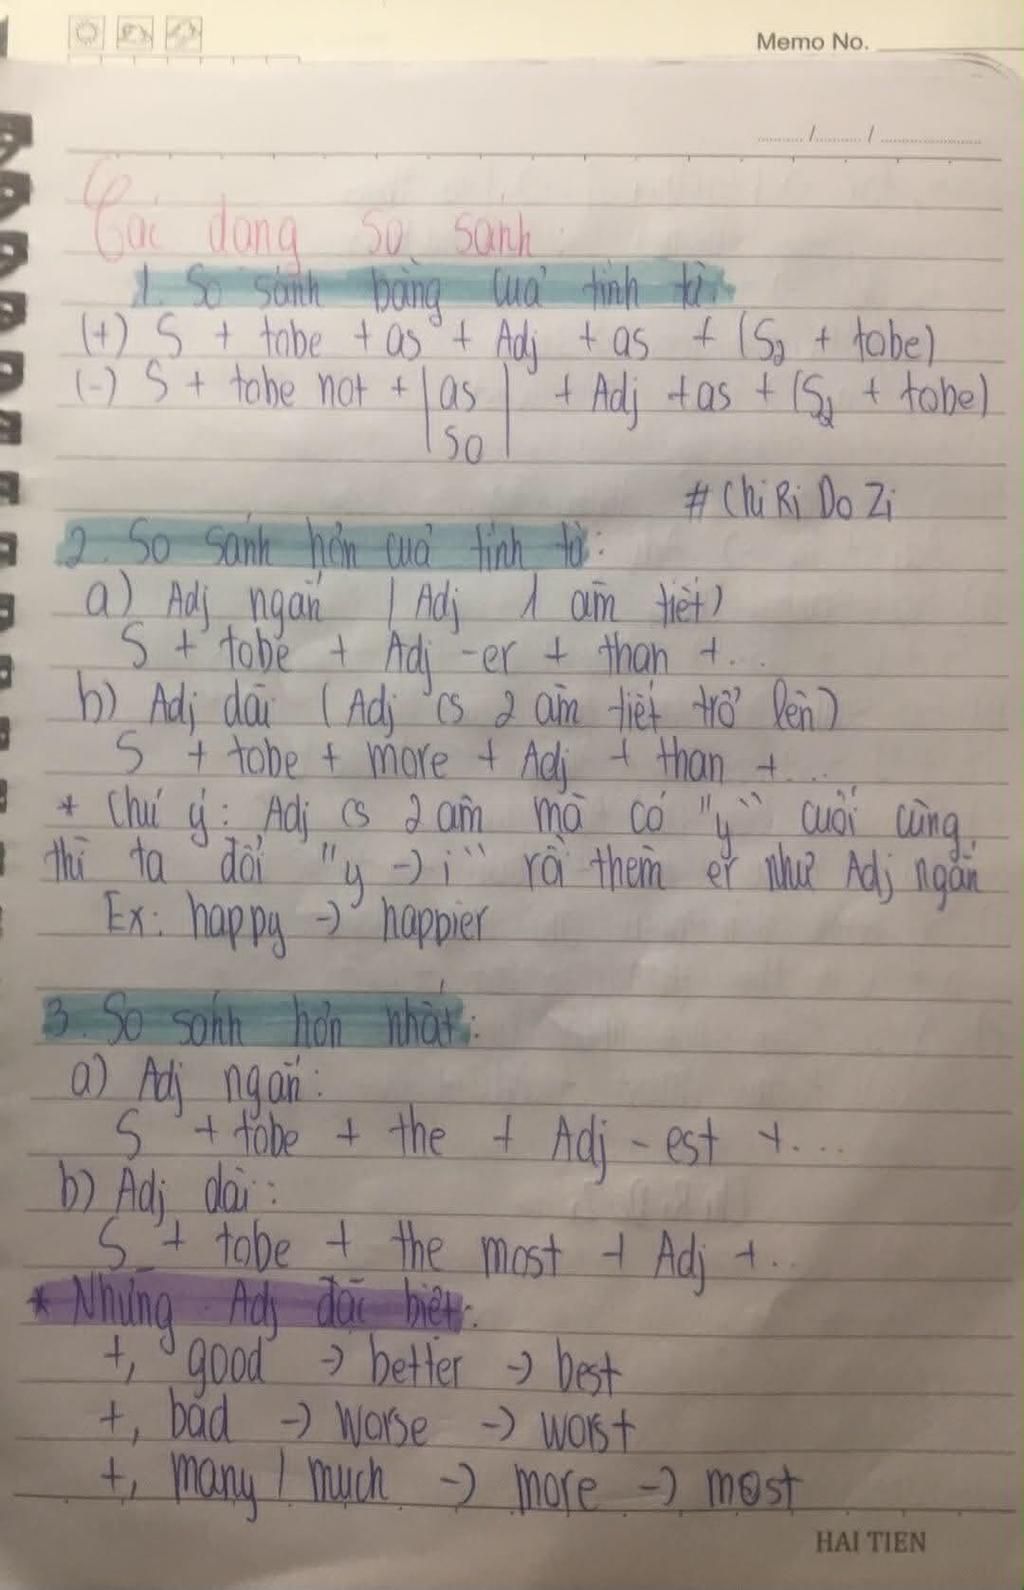 Memo No.
Các dạng so sánh:
1. So sánh bằng của tính từ:
(+) S + tobe + as + Adj + as + (S2 + tobe)
(-) S + tobe not + | as | + Adj + as + (S2 + tobe)
so
# Chi Ri Do Zi
2. So sánh hơn của tính từ:
a) Adj ngắn (Adj 1 âm tiết)
S + tobe + Adj -er + than + ...
b) Adj dài (Adj cs 2 âm tiết trở lên)
S + tobe + more + Adj + than + ...
* Chú ý: Adj cs 2 âm mà có "y" cuối cùng
thì ta đổi "y -> i" rồi thêm er như Adj ngắn
Ex: happy -> happier
3. So sánh hơn nhất:
a) Adj ngắn:
S + tobe + the + Adj - est + ...
b) Adj dài:
S + tobe + the most + Adj + ..
* Những Adj đặc biệt:
+, good -> better -> best
+, bad -> worse -> worst
+, many / much -> more -> most
HAI TIEN